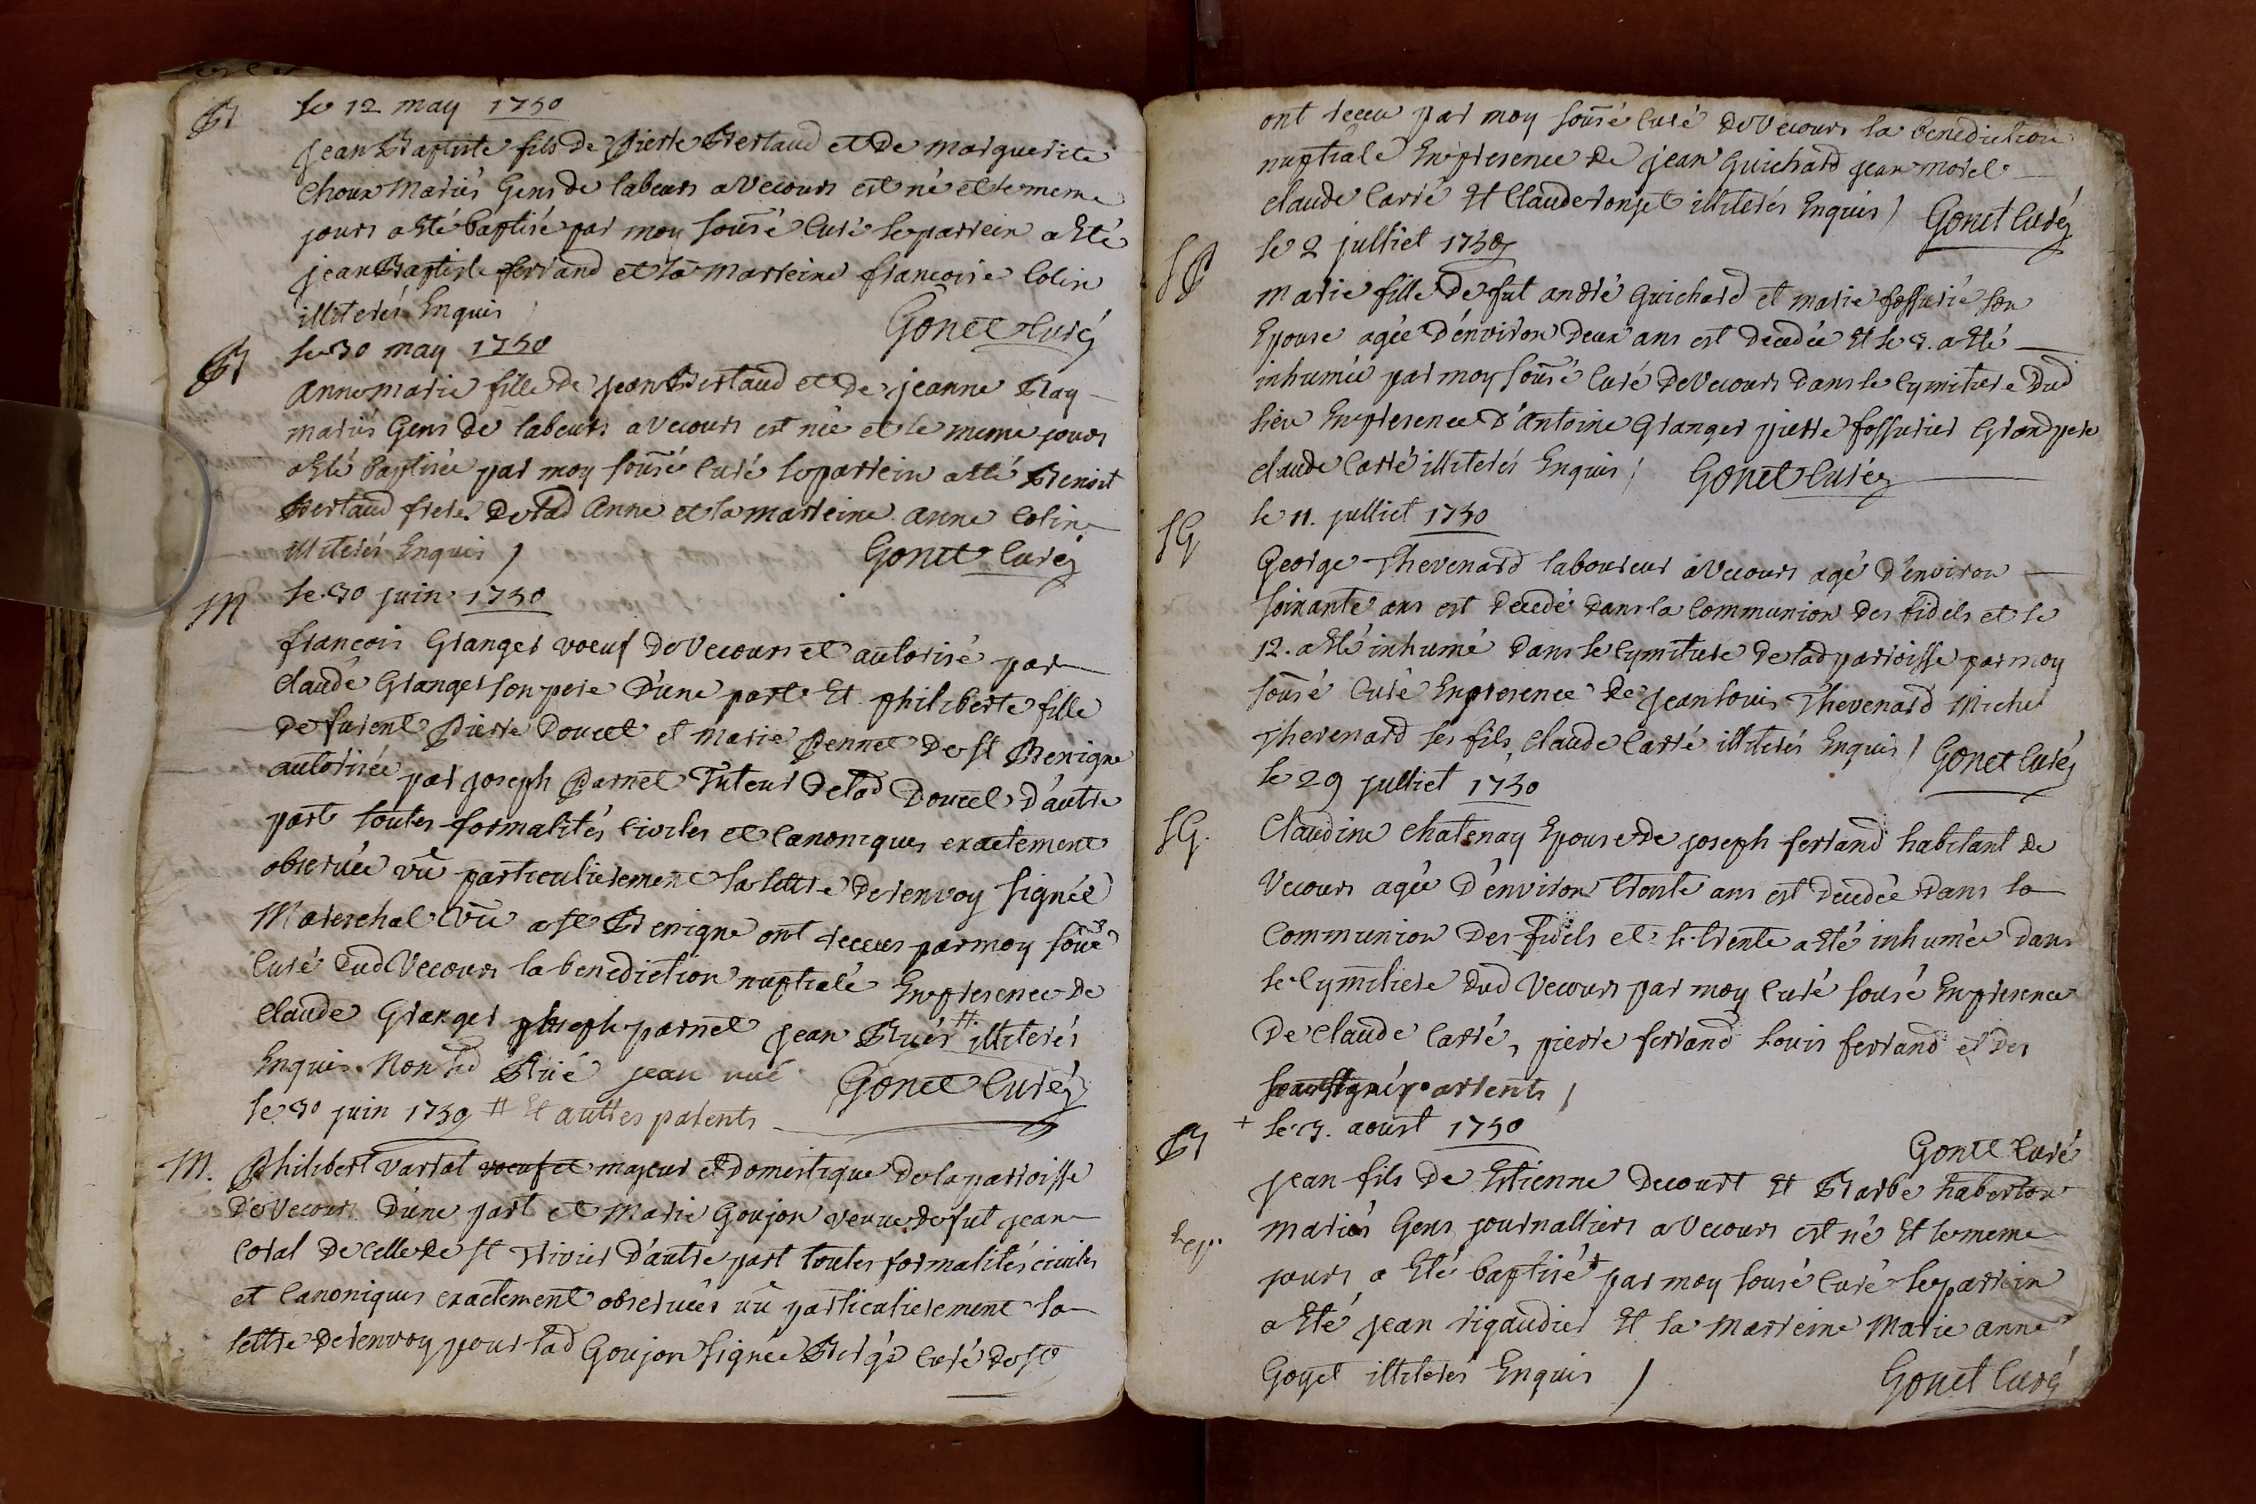 B
le 12 may 1730
jean Baptiste fils de pierre Bertaud et de marguerite
choux Mariés Gens de labeurs a Vecours est né et le meme
jours a Eté baptisé par moy sousé Curé le parrein a Eté
jean Baptiste ferrand et la Marreine francoise Colin
illiterés Enquis /
Gonet Curé
B
le 30 may 1730
Anne marie fille de jean Bertaud et de jeanne Blay
mariés Gens de labeurs a Vecours est née et le meme jours
a Eté baptisée par moy sousé Curé le parrein a Eté Benoit
Bertaud frere de lad Anne et la marreine anne Colin
illiterés Enquis /
Gonet Curé
M
le 30 juin 1730
francois Granger voeuf de Vecours et autorisé par
claude Granger son pere d'une part Et philiberte fille
de furent Pierre Doucet et Marie Pennet de st Benigne
autorisée par joseph Parnet Tuteur de lad Doucet d'autre
part toutes formalités Civiles et Canoniques exactement
observée vû particulierement la lettre de renvoy signée
Mareschal Cure a st Benigne ont receus par moy sousé
Curé dud Vecours la benediction nuptiale En presence de
claude Granger joseph parnet jean Rué # illiterés
Enquis. Non led Rué jean rué
Gonet Curé
le 30 juin 1730 # Et autres parents
M.
Philibert Variat voeuf et majeur et domestique de la parroisse
de Vecours d'une part et Marie Goujon veuve de fut jean
Coral de Celle de st Trivier d'autre part toutes formalités civiles
et Canoniques exactement observées vû particulierement la
lettre de renvoy pour lad Goujon signée Bergé Curé de st
ont receu par moy sousé Curé de Vecours la benediction
nuptiale En presence de jean Guichard jean morel
claude Carré Et Claude ronjet illiterés Enquis /
Gonet Curé
SP
le 2 julliet 1730
marie fille de fut andré Guichard et marie fossurié son
Epouse agée d'environ deux ans est decedée Et le 3. a Eté
inhumée par moy sousé Curé de Vecours dans le Cymitiere dud
lieu En presence d'antoine Granger pierre fossurier Grand pere
claude Carré illiterés Enquis /
Gonet Curé
SG
le 11. julliet 1730
George Thevenard laboureur a Vecours agé d'environ
soixante ans est decedé dans la Communion des fidels et le
12. a Eté inhumé dans le Cymitiere de lad parroisse par moy
sousé Curé En presence de jean louis Thevenard Michel
Thevenard ses fils, claude Carré illiterés Enquis /
Gonet Curé
le 29 julliet 1730
SG.
Claudine Chatenay Epouse de joseph ferrand habitant de
Vecours agée d'environ trente ans est decedée dans la
Communion des fidels et le trente a Eté inhumée dans
le Cymitiere dud Vecours par moy Curé sousé En presence
de Claude Carré, pierre ferrand louis ferrand et des
soussignés parrents /
+ le 3. aoust 1730
Gonet Curé
B
jean fils de Etienne Decourt Et Barbe haberton
mariés Gens journalliers a Vecours est né Et le meme
jours a Eté baptisé par moy sousé Curé le parrein
a Eté jean rigaudier Et la Marreine Marie anne
Goyet illiterés Enquis /
Gonet Curé